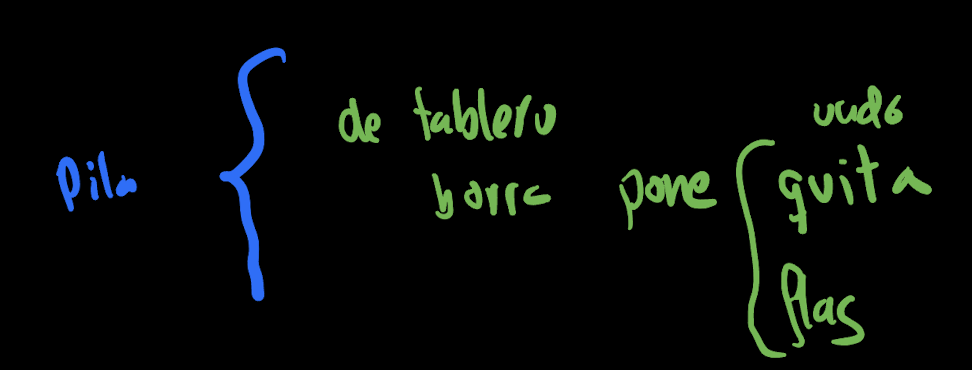 Pila
de tablero
borra pone
quita
flag